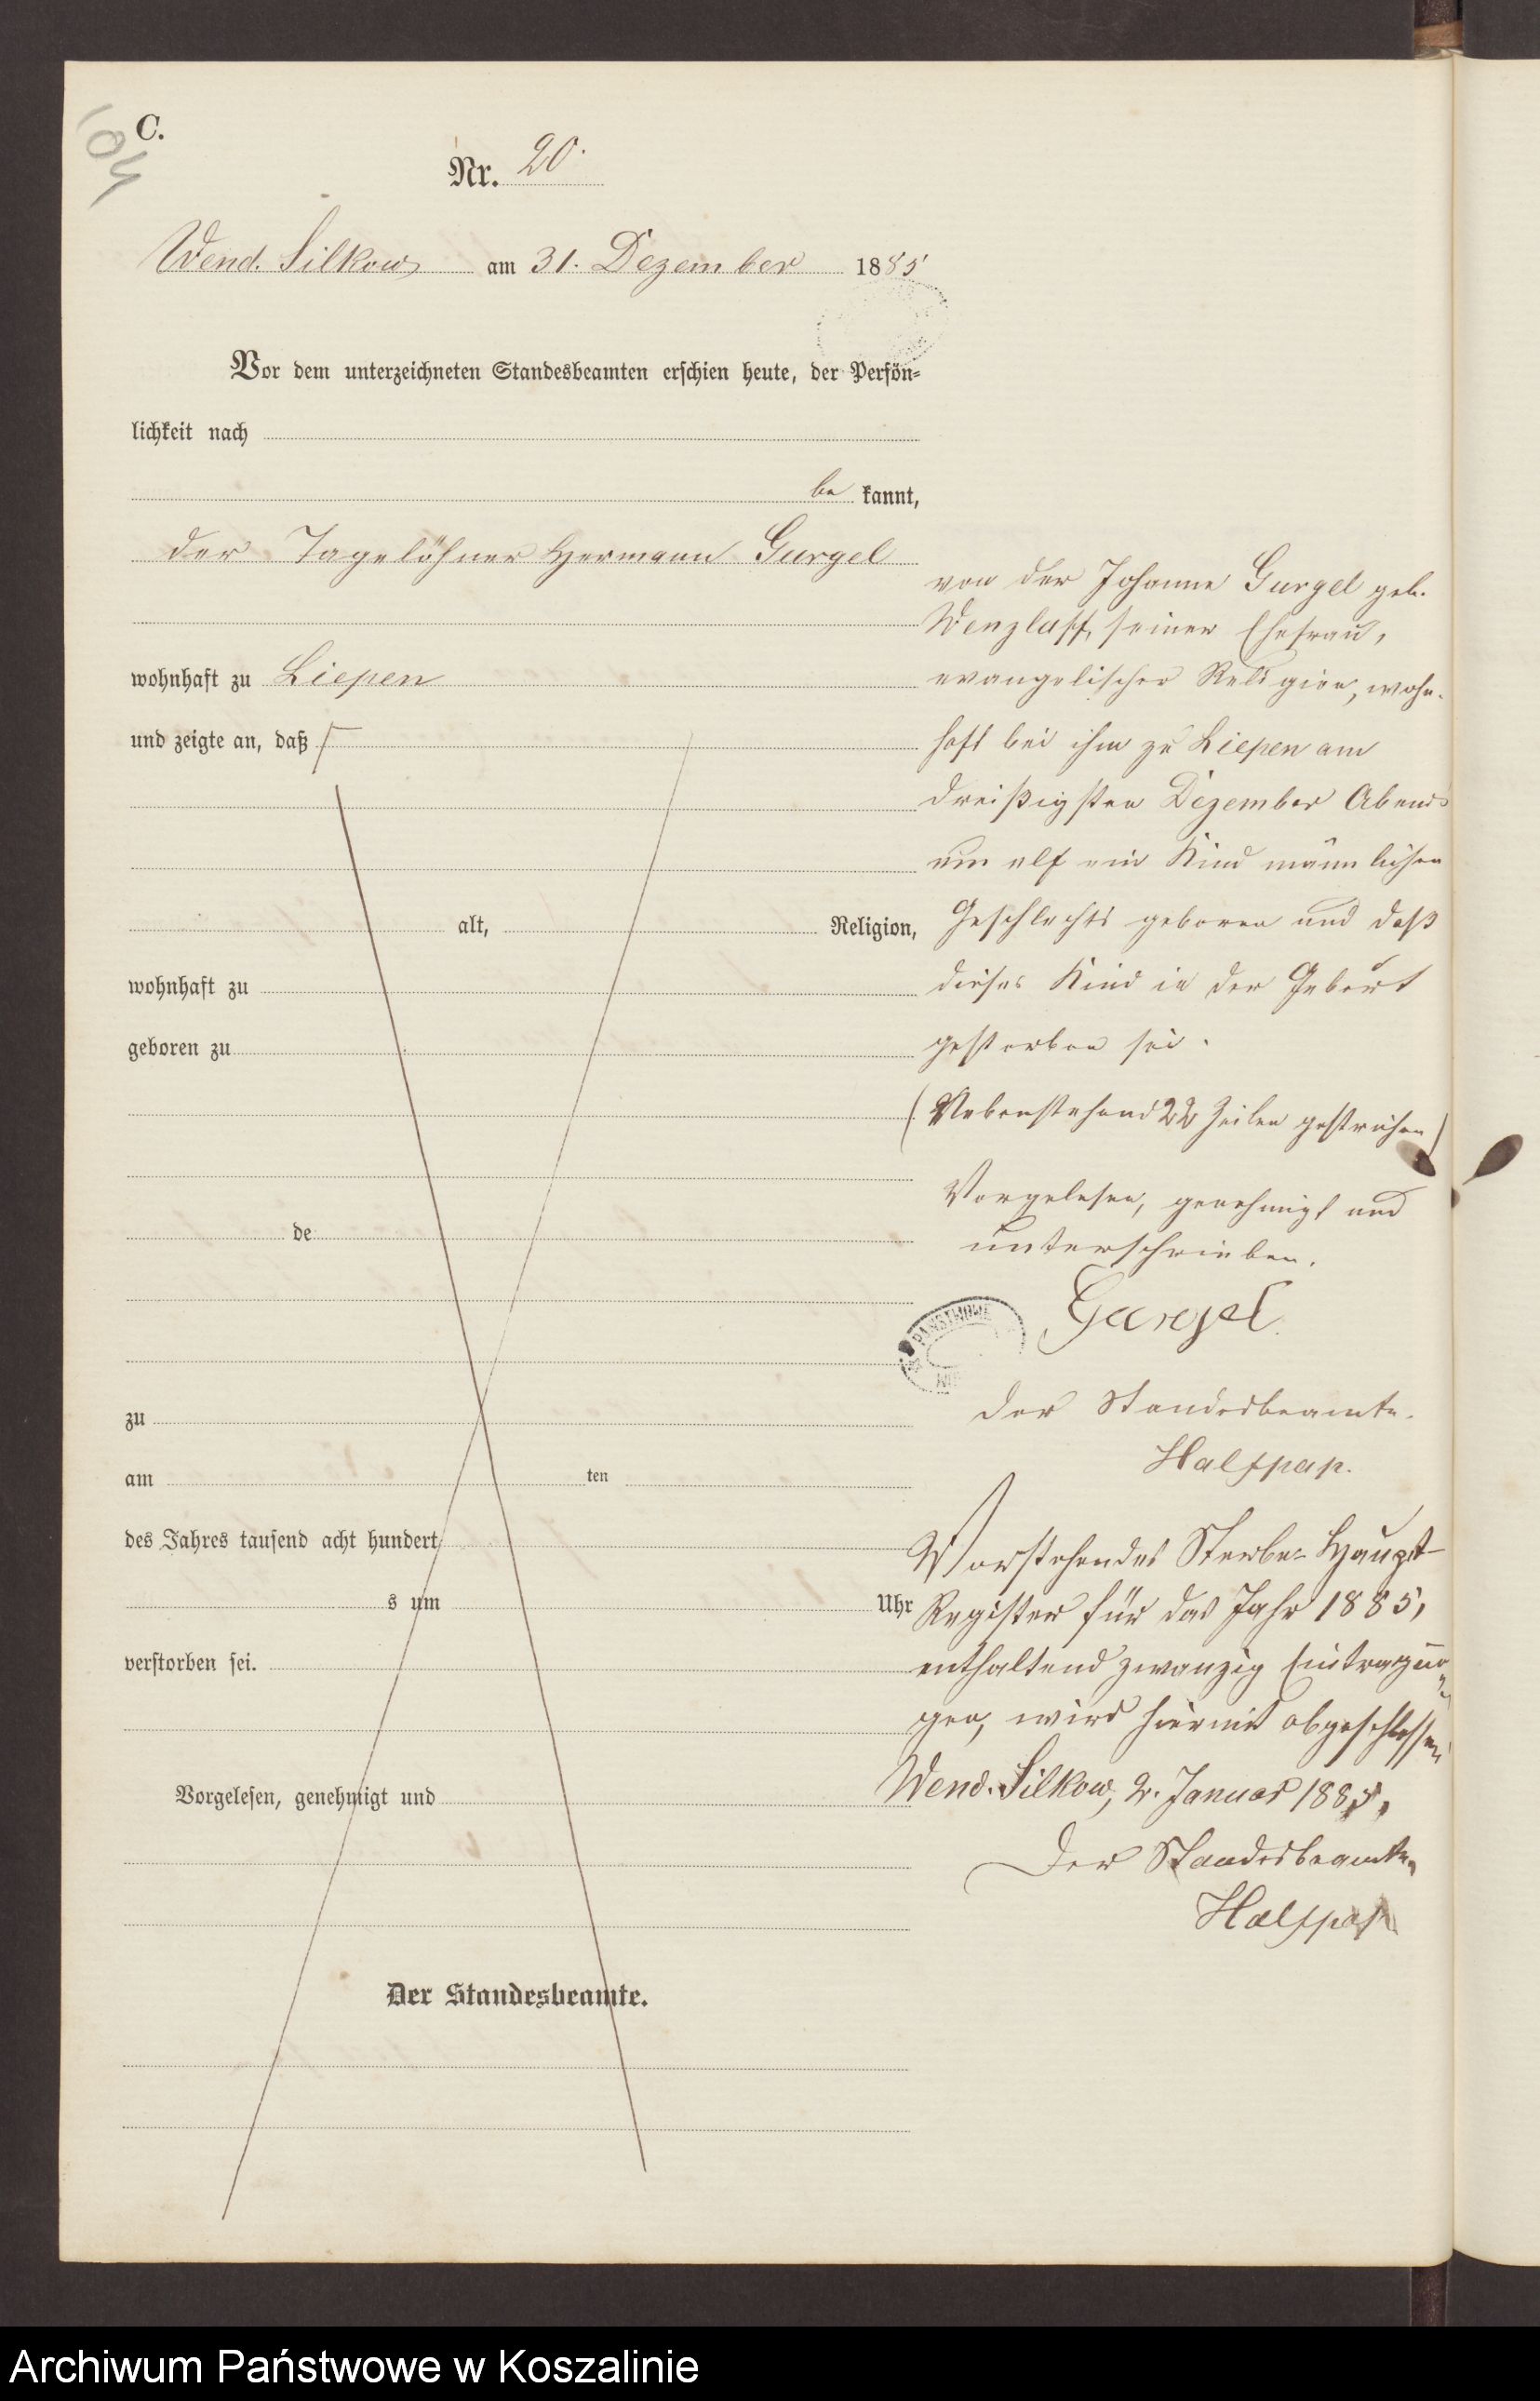 104
C.
Nr. 20.
Wend. Silkow am 31. Dezember 1885
Vor dem unterzeichneten Standesbeamten erschien heute, der Persön-
lichkeit nach
be kannt,
der Tagelöhner Hermann Gurgel
wohnhaft zu Liepen
und zeigte an, daß
alt, Religion,
wohnhaft zu
geboren zu
de
zu
am ten
des Jahres tausend acht hundert
s um Uhr
verstorben sei.
Vorgelesen, genehmigt und
Der Standesbeamte.
von der Johanne Gurgel geb.
Wenzlaff, seiner Ehefrau,
evangelischer Religion, wohn-
haft bei ihm zu Liepen am
dreißigsten Dezember Abends
um elf ein Kind männlichen
Geschlechts geboren und daß
dieses Kind in der Geburt
gestorben sei.
(Nebenstehend 22 Zeilen gestrichen)
Vorgelesen, genehmigt und
unterschrieben.
Gurgel
PAŃSTWOWE
Der Standesbeamte.
Halfpap.
Vorstehendes Sterbe-Haupt-
Register für das Jahr 1885,
enthaltend zwanzig Eintragun-
gen, wird hiermit abgeschlossen
Wend. Silkow, 2. Januar
Der Standesbeamte.
Halfpap
Archiwum Państwowe w Koszalinie